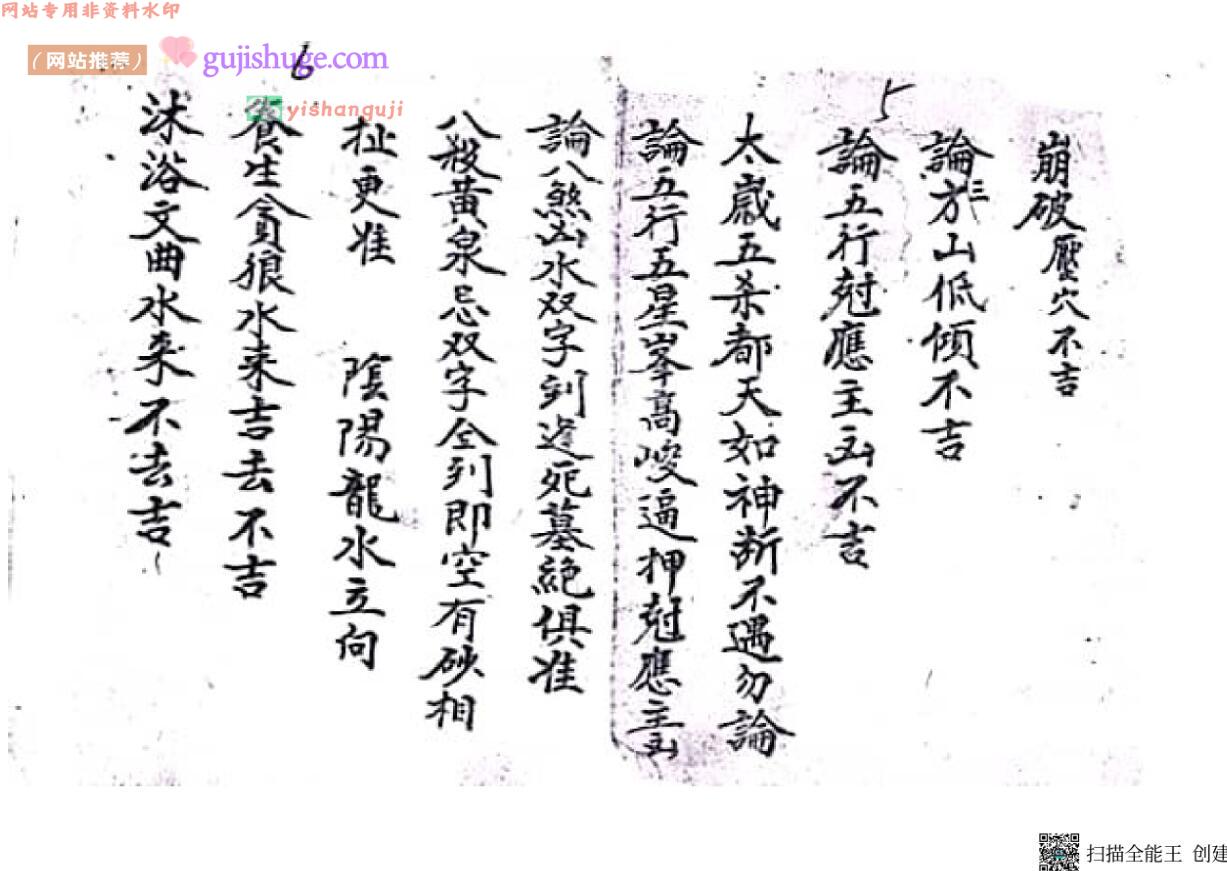 网站专用非资料水印
（网站推荐） gujishuge.com
yishanguji
5
崩破壓穴不吉
論方三山低傾不吉
論五行尅應主凶不吉
太歲五杀都天如神断不遇勿論
論五行五星峯高峻逼押尅應主凶
6
論八煞凶水双字到逢死墓絶俱准
八殺黄泉忌双字全到即空有砂相
扯更准 陰陽龍水立向
養生貪狼水来吉去不吉
沐浴文曲水来不去吉
扫描全能王 创建